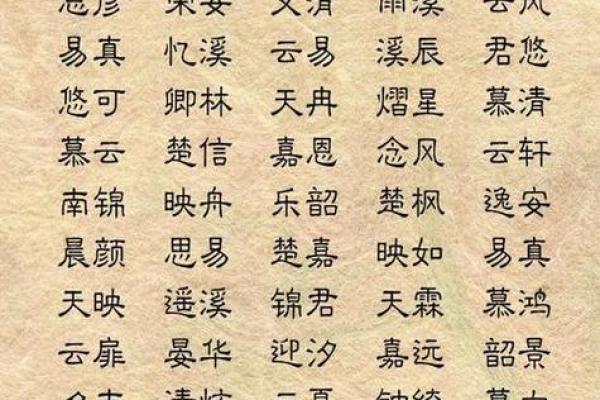 荣安 文清 雨溪 云风
易真 忆溪 云易 溪辰 君悠
悠可 卿林 天冉 熠星 慕清
慕云 楚信 嘉恩 念风 云轩
南锦 映舟 乐韶 楚枫 逸安
晨颜 思易 楚嘉 映如 易真
天映 遥溪 锦君 天霖 慕鸿
云扉 晏华 迎汐 嘉远 韶景